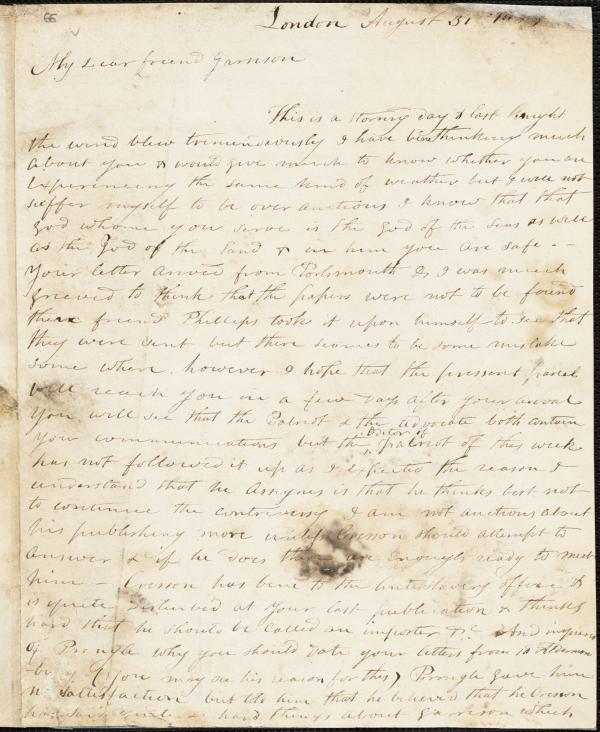 66
London August 31
My dear friend Garrison
This is a stormy day & last knight
the wind blew tremendiously I have been thinking much
about you & would give much to know whether you are
experiencing the same kind of weather but I will not
suffer myself to be over anctious I know that that
god whome you serve is the god of the Seas as well
as the God of the land & in him you are safe. -
Your letter arived from Portsmouth & I was much
greived to think that the papers were not to be found
there friend Phillips took it upon himself to see that
they were sent but there seames to be some mistake
some where. however I hope that the pressent parcel
will reach you in a few days after your arival
You will see that the Patriot & the advocate both contain
your communications but the Editor of
patriot of this week
has not followed it up as I expected the reason I
understand that he assignes is that he thinks best not
to continue the controversy I am not anctious about
his publishing more unless Cresson should attempt to
answer & if he does there are enough ready to meet
him - Cresson has bene to the Antislavery office &
is quite disturbed at your last publication & thinks
hard that he should be called an imposter &c. And inquired
of Prongle why you should date your letters from 18 Alderman-
bury (you may see his reason for this) Prongle gave him
n satisfaction but tols him that he believed that he Cresson
had said & hard things about Garrison which